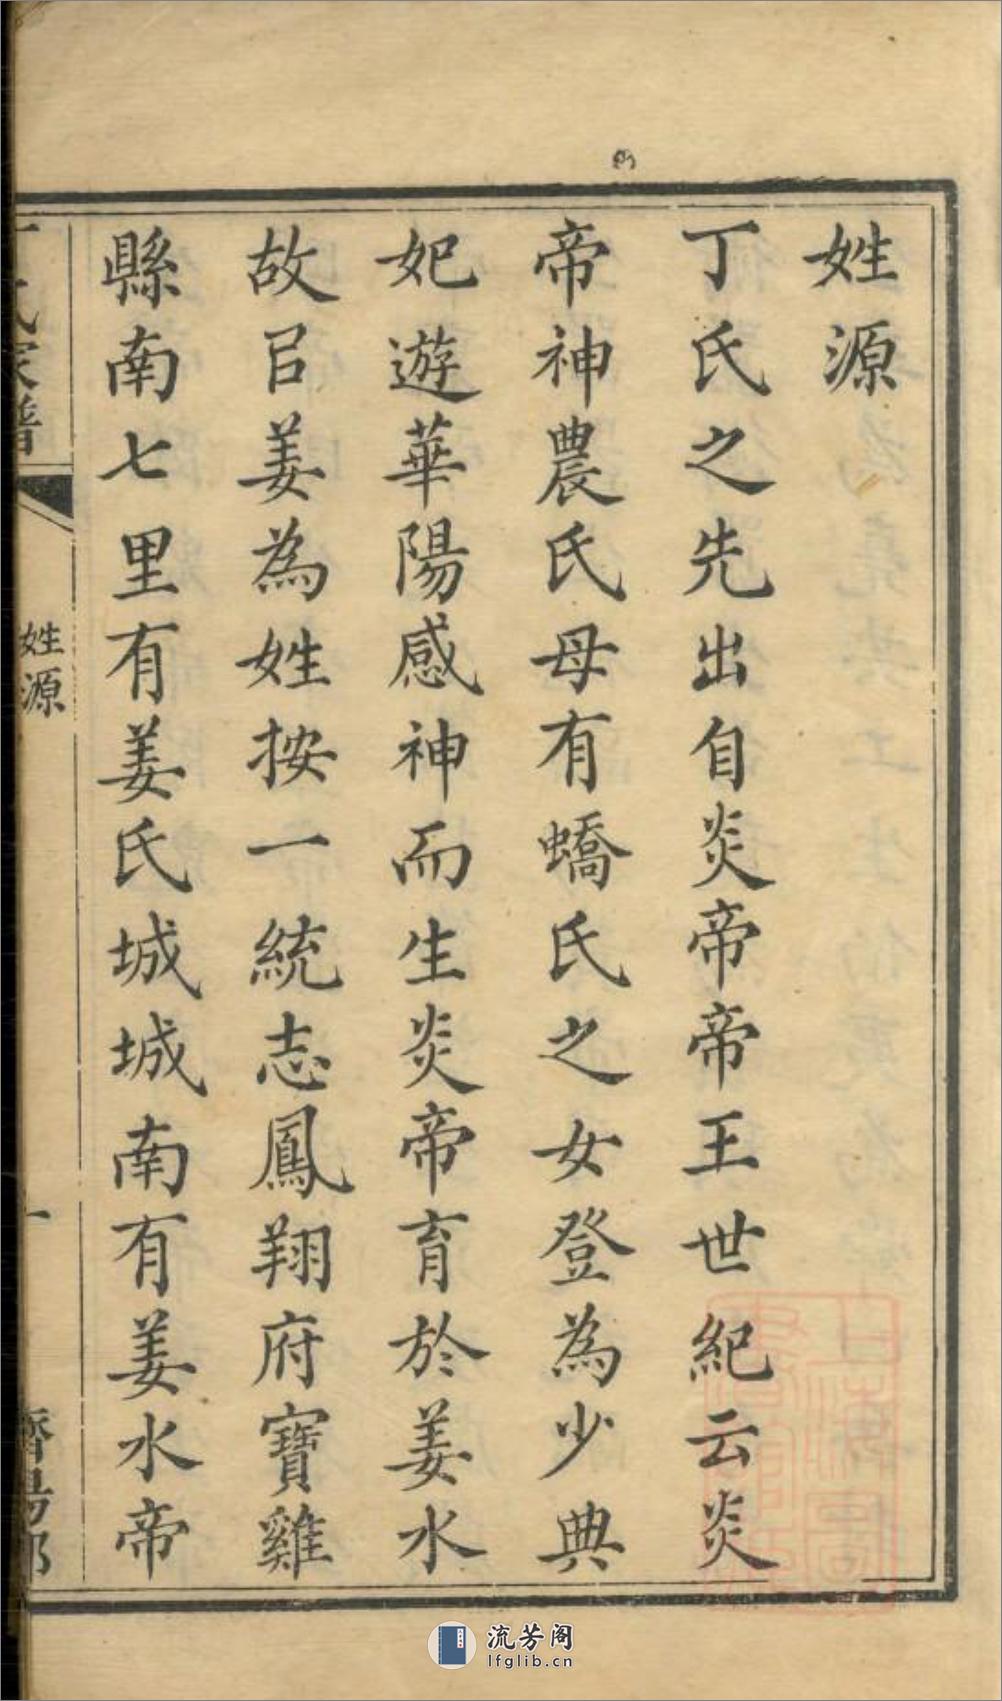 姓源
丁氏之先出自炎帝帝王世紀云炎
帝神農氏母有蟜氏之女登為少典
妃遊華陽感神而生炎帝育於姜水
故㠯姜為姓按一統志鳳翔府寶雞
縣南七里有姜氏城城南有姜水帝
姓源
一
流芳阁
lfglib.cn